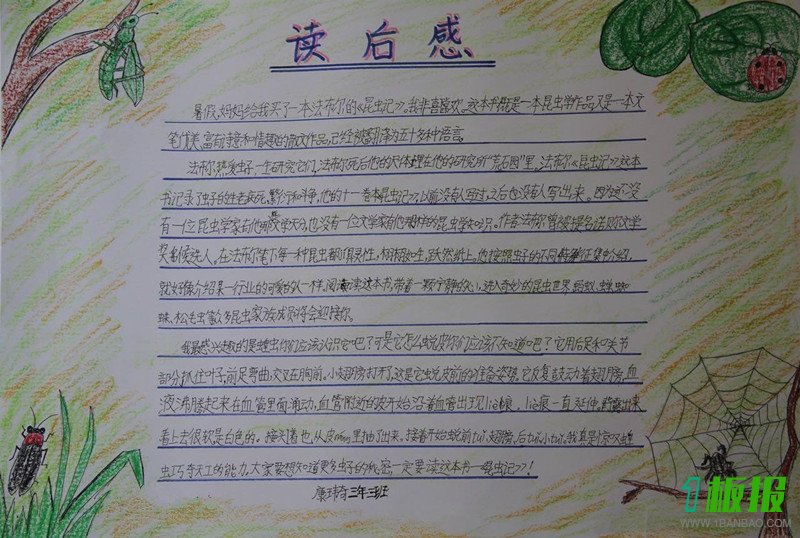 读后感
暑假,妈妈给我买了一本法布尔的《昆虫记》。我非喜喜欢。这本书既是一本昆虫学作品,又是一本文
笔优美,富有诗意和情趣的散文作品,已经被翻译为五十多种语言。
法布尔热爱虫子一生研究它们,法布尔死后他的尸体埋在他的研究所“荒石园”里。法布尔《昆虫记》这本
书记录了虫子的生老病死、繁衍和斗争,他的十一卷本昆虫记以前没有人写过,之后也没有人写出来。因为还没
有一位昆虫学家有他那文学天分,也没有一位文学家有他那样的昆虫学知识。作者法布尔曾被提名诺贝尔文学
奖候选人。在法布尔笔下每一种昆虫都有灵性,栩栩如生,跃然纸上。他按照虫子的不同特征集介绍,
就好像介绍某一行业的可爱的人一样。阅读这本书,带着一颗宁静的心,进入奇妙的昆虫世界,蚂蚁、蝉、蜘
蛛、松毛虫等众多昆虫家族成员将会迎接你。
我最感兴趣的是蝗虫你们应该认识它吧?可是它怎么蜕皮你们应该不知道吧?它用后足和关节
部分扒住叶子,前足弯曲,交叉在胸前。小翅膀打开了,这是它蜕皮前的准备姿势。它反复鼓动着翅膀,血
液沸腾起来在血管里面涌动,血管附近的皮开始沿着血管出现lie痕,lie痕一直延伸。露出来
看上去很软是白色的。接着,从皮里抽了出来。接着开始蜕前tui、翅膀,后tui小tui。我真是惊叹蝗
虫巧夺天工的能力,大家要想知道更多虫子的秘密,一定要读这本书—昆虫记》!
康玮奇 三年三班
1板报
WWW.1BANBAO.COM